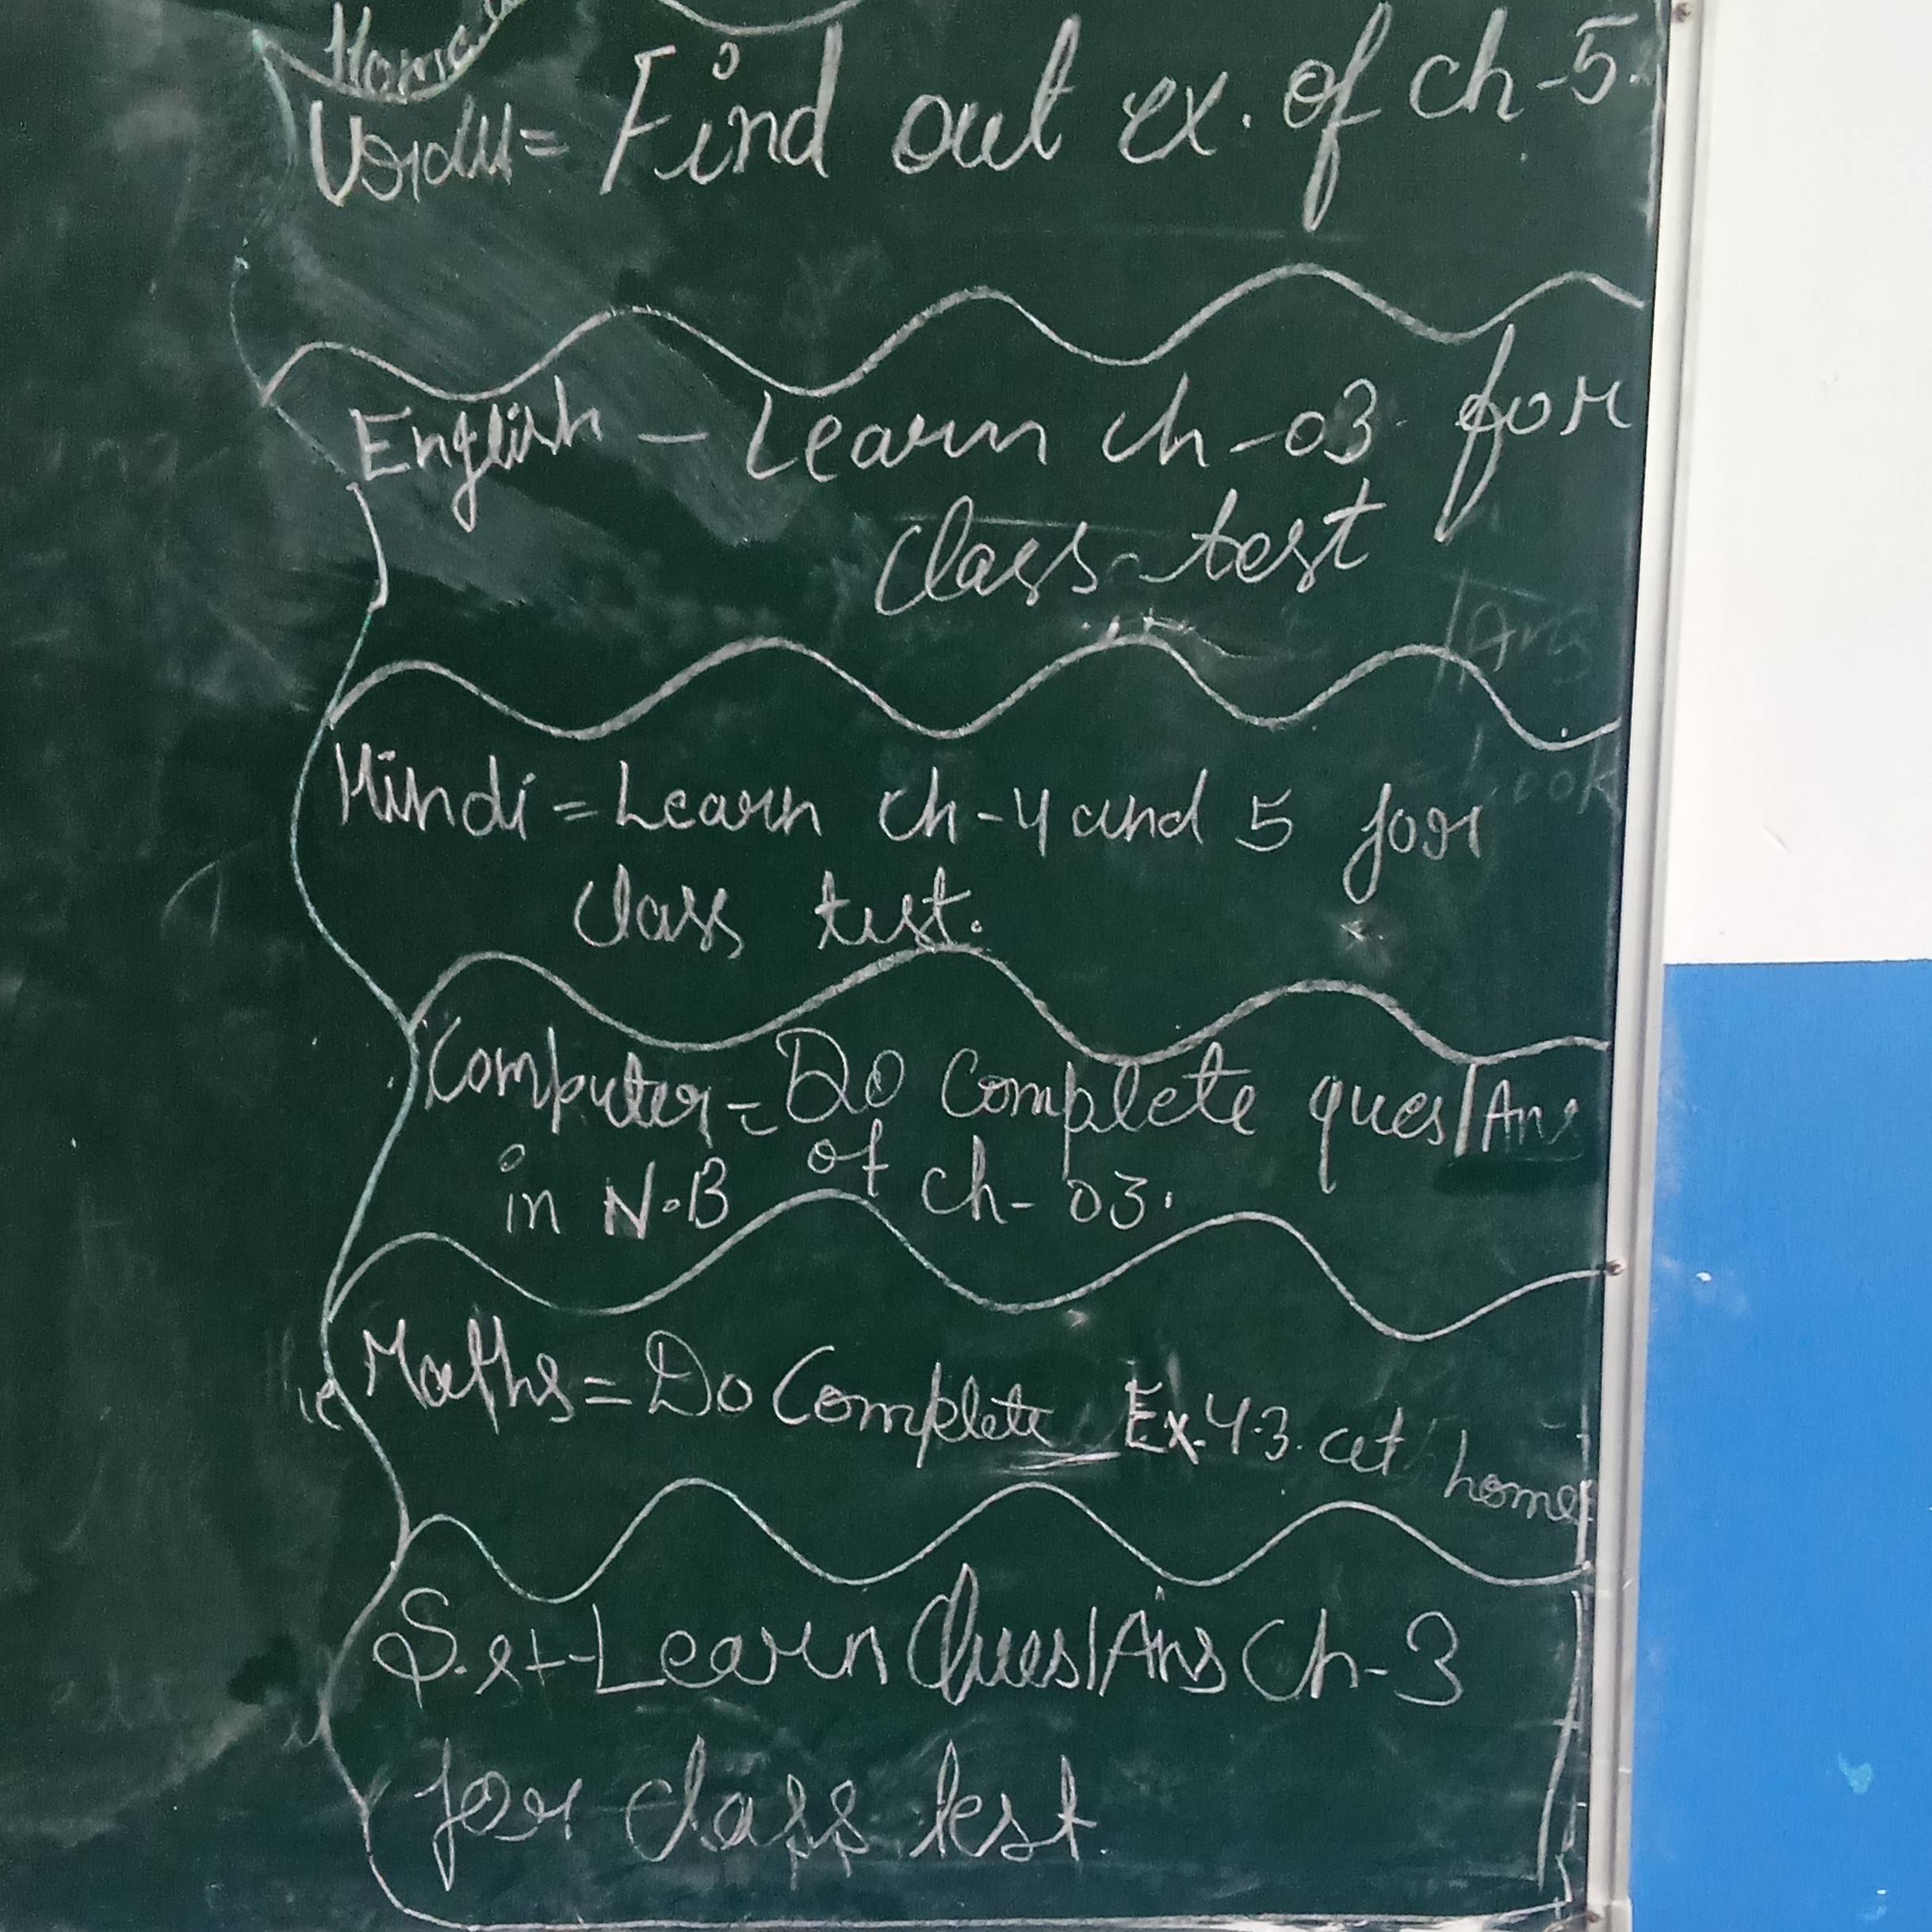 Home
Urdu = Find out ex. of ch-5.
English - Learn ch-03 for
class test
Hindi = Learn ch-4 and 5 for
class test.
Computer = Do Complete ques/Ans
in N.B of ch-03.
Maths = Do Complete Ex.4.3. at home
S.st-Learn Ques/Ans Ch-3
for class test